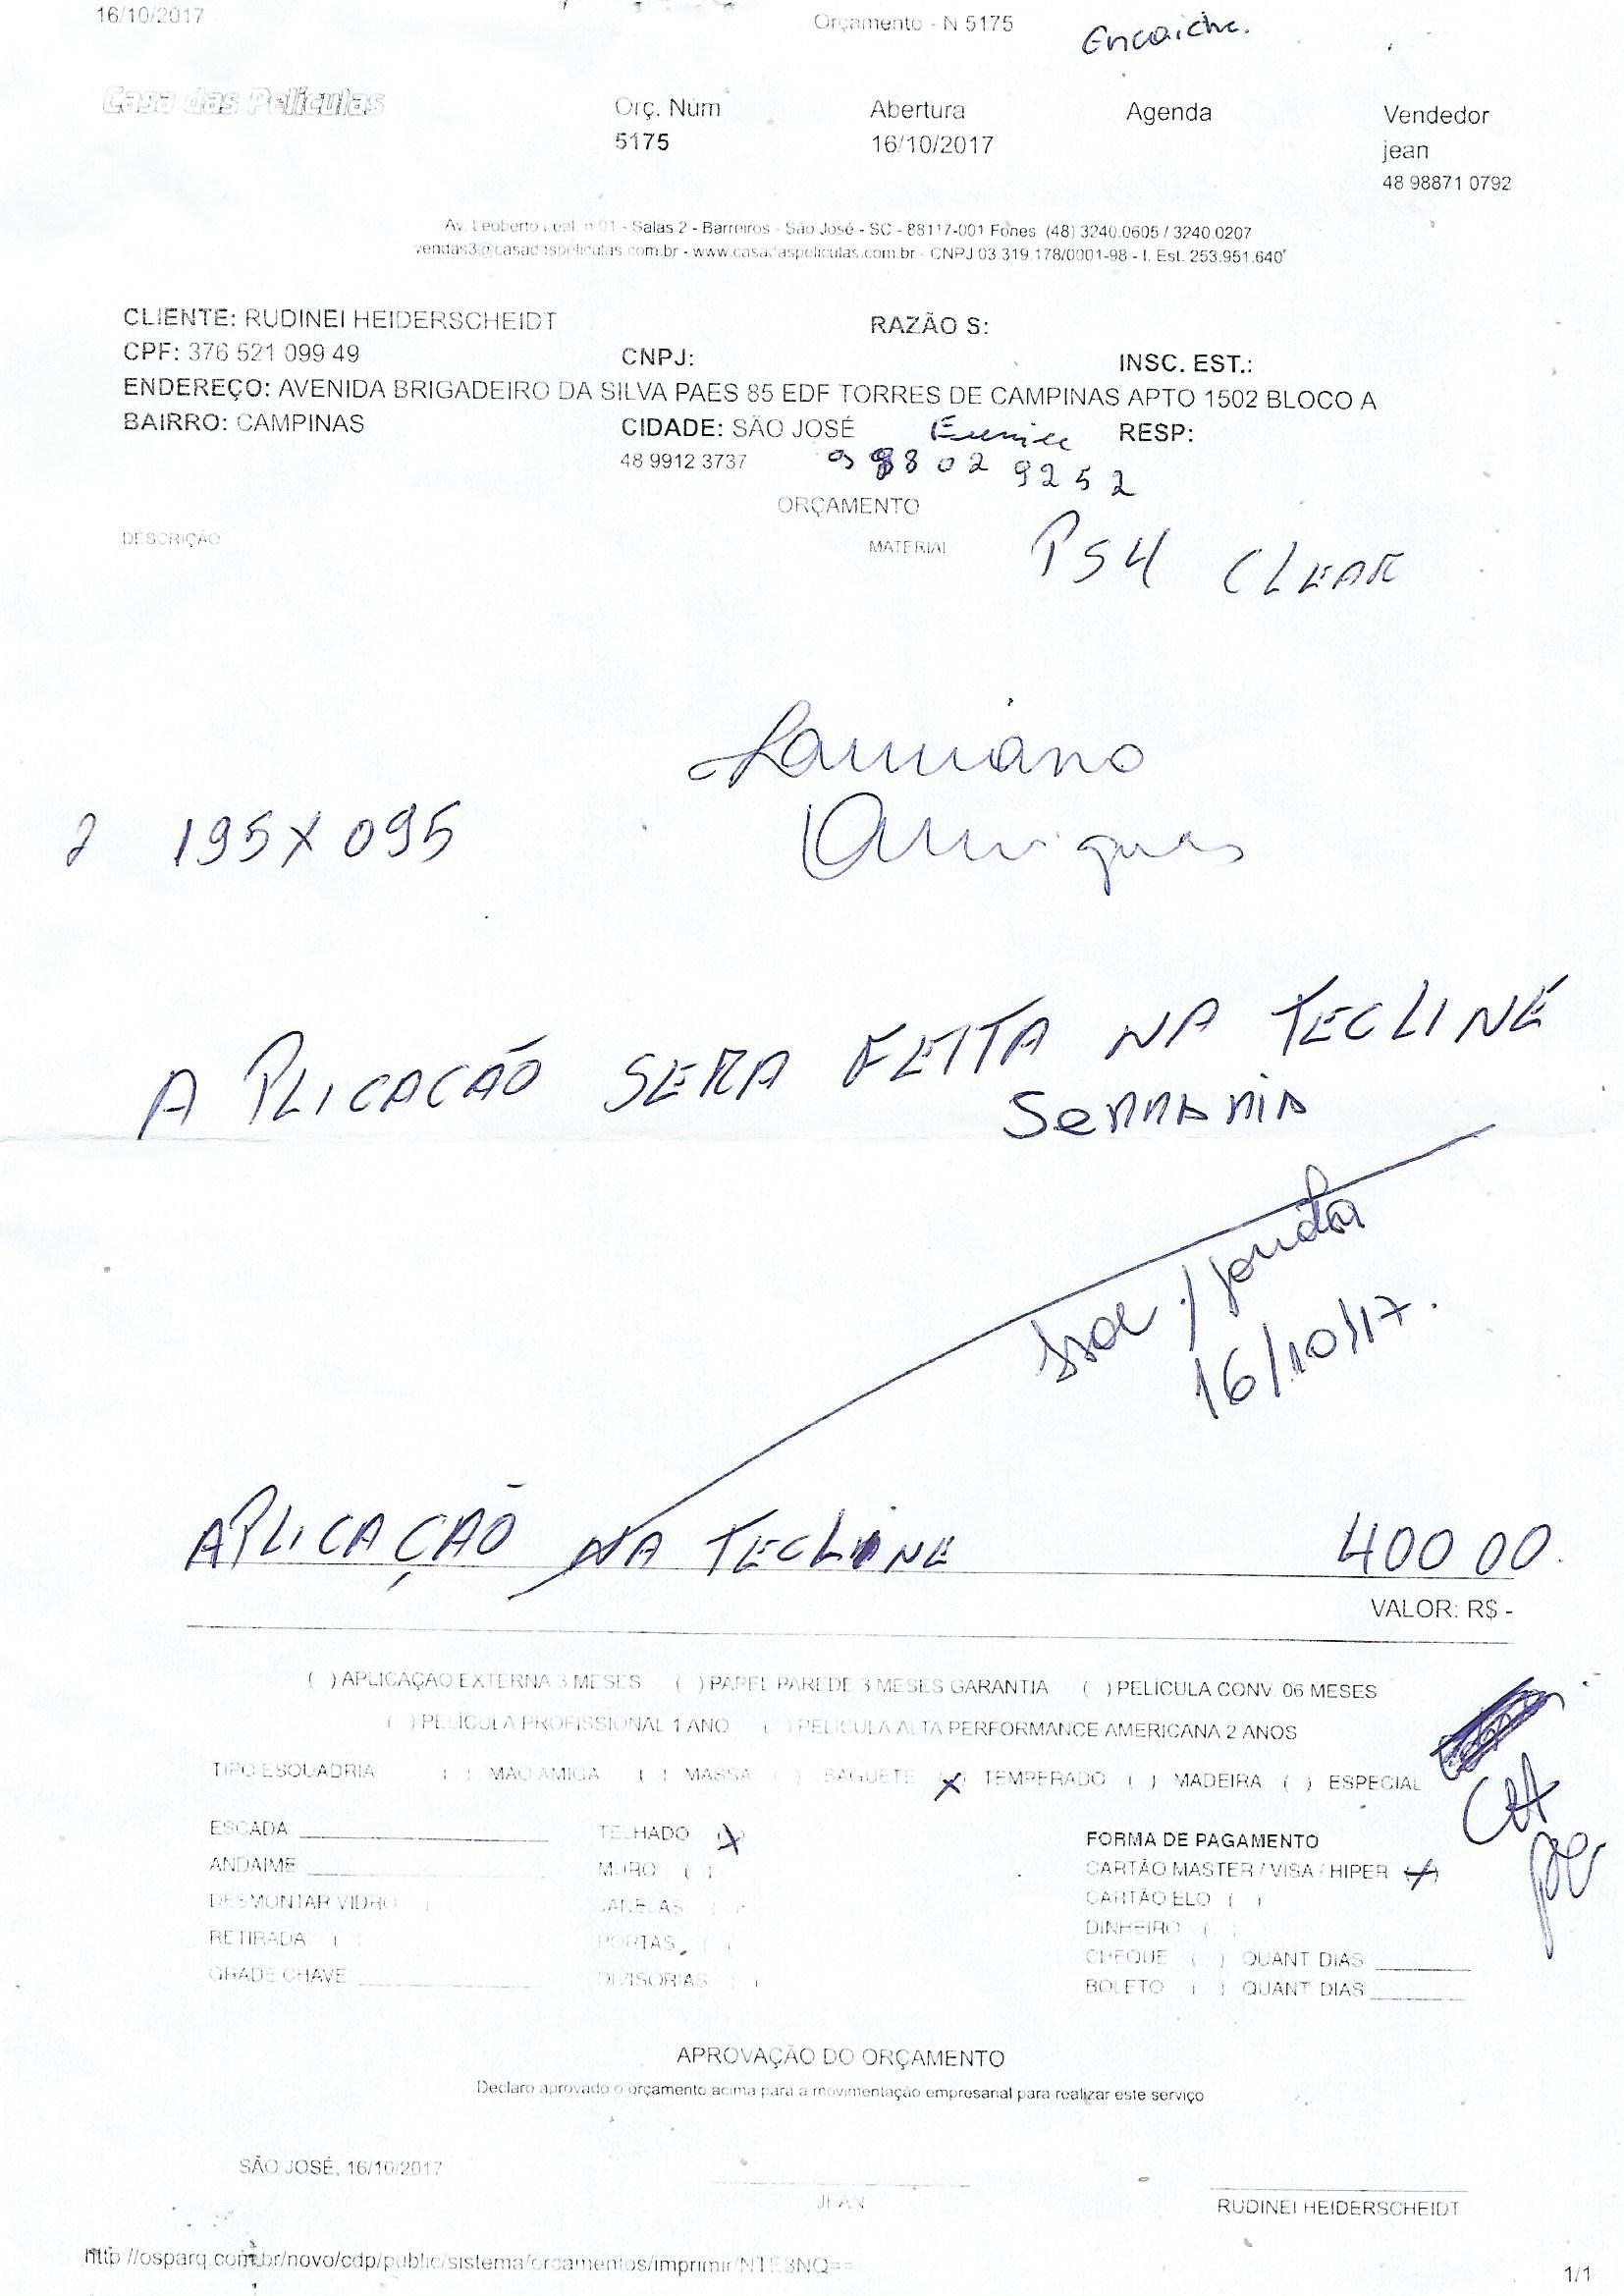 16/10/2017 Orçamento - N 5175 Encaiche.
Casa das Películas Orç. Núm Abertura Agenda Vendedor
5175 16/10/2017 jean
48 98871 0792
Av. Leoberto Leal, n 01 - Salas 2 - Barreiros - São José - SC - 88117-001 Fones (48) 3240.0605 / 3240.0207
vendas3@casadaspeliculas.com.br - www.casadaspeliculas.com.br - CNPJ 03.319.178/0001-98 - I. Est. 253.951.640
CLIENTE: RUDINEI HEIDERSCHEIDT RAZÃO S:
CPF: 376 521 099 49 CNPJ: INSC. EST.:
ENDEREÇO: AVENIDA BRIGADEIRO DA SILVA PAES 85 EDF TORRES DE CAMPINAS APTO 1502 BLOCO A
BAIRRO: CAMPINAS CIDADE: SÃO JOSÉ Eunice RESP:
48 9912 3737 9 8802 9252
ORÇAMENTO
DESCRIÇÃO MATERIAL PS4 CLEAR
2 195X095
APLICACÃO SERA FEITA NA TECLINE
SerrariA
16/10/17.
APLICAÇÃO NA TECLINE 400 00.
VALOR: R$ -
( ) APLICAÇÃO EXTERNA 3 MESES ( ) PAPEL PAREDE 3 MESES GARANTIA ( ) PELÍCULA CONV. 06 MESES
( ) PELÍCULA PROFISSIONAL 1 ANO ( ) PELÍCULA ALTA PERFORMANCE AMERICANA 2 ANOS
TIPO ESQUADRIA ( ) MAO AMIGA ( ) MASSA ( ) BAGUETE (X) TEMPERADO ( ) MADEIRA ( ) ESPECIAL
ESCADA TELHADO (X) FORMA DE PAGAMENTO
ANDAIME MURO ( ) CARTÃO MASTER / VISA / HIPER (X)
DESMONTAR VIDRO ( ) JANELAS ( ) CARTÃO ELO ( )
RETIRADA ( ) PORTAS ( ) DINHEIRO ( )
GRADE CHAVE DIVISORIAS ( ) CHEQUE ( ) QUANT DIAS
BOLETO ( ) QUANT DIAS
APROVAÇÃO DO ORÇAMENTO
Declaro aprovado o orçamento acima para a movimentação empresarial para realizar este serviço
SÃO JOSÉ, 16/10/2017
JEAN RUDINEI HEIDERSCHEIDT
http://osparq.com.br/novo/cdp/public/sistema/orcamentos/imprimir/NTE3NQ== 1/1